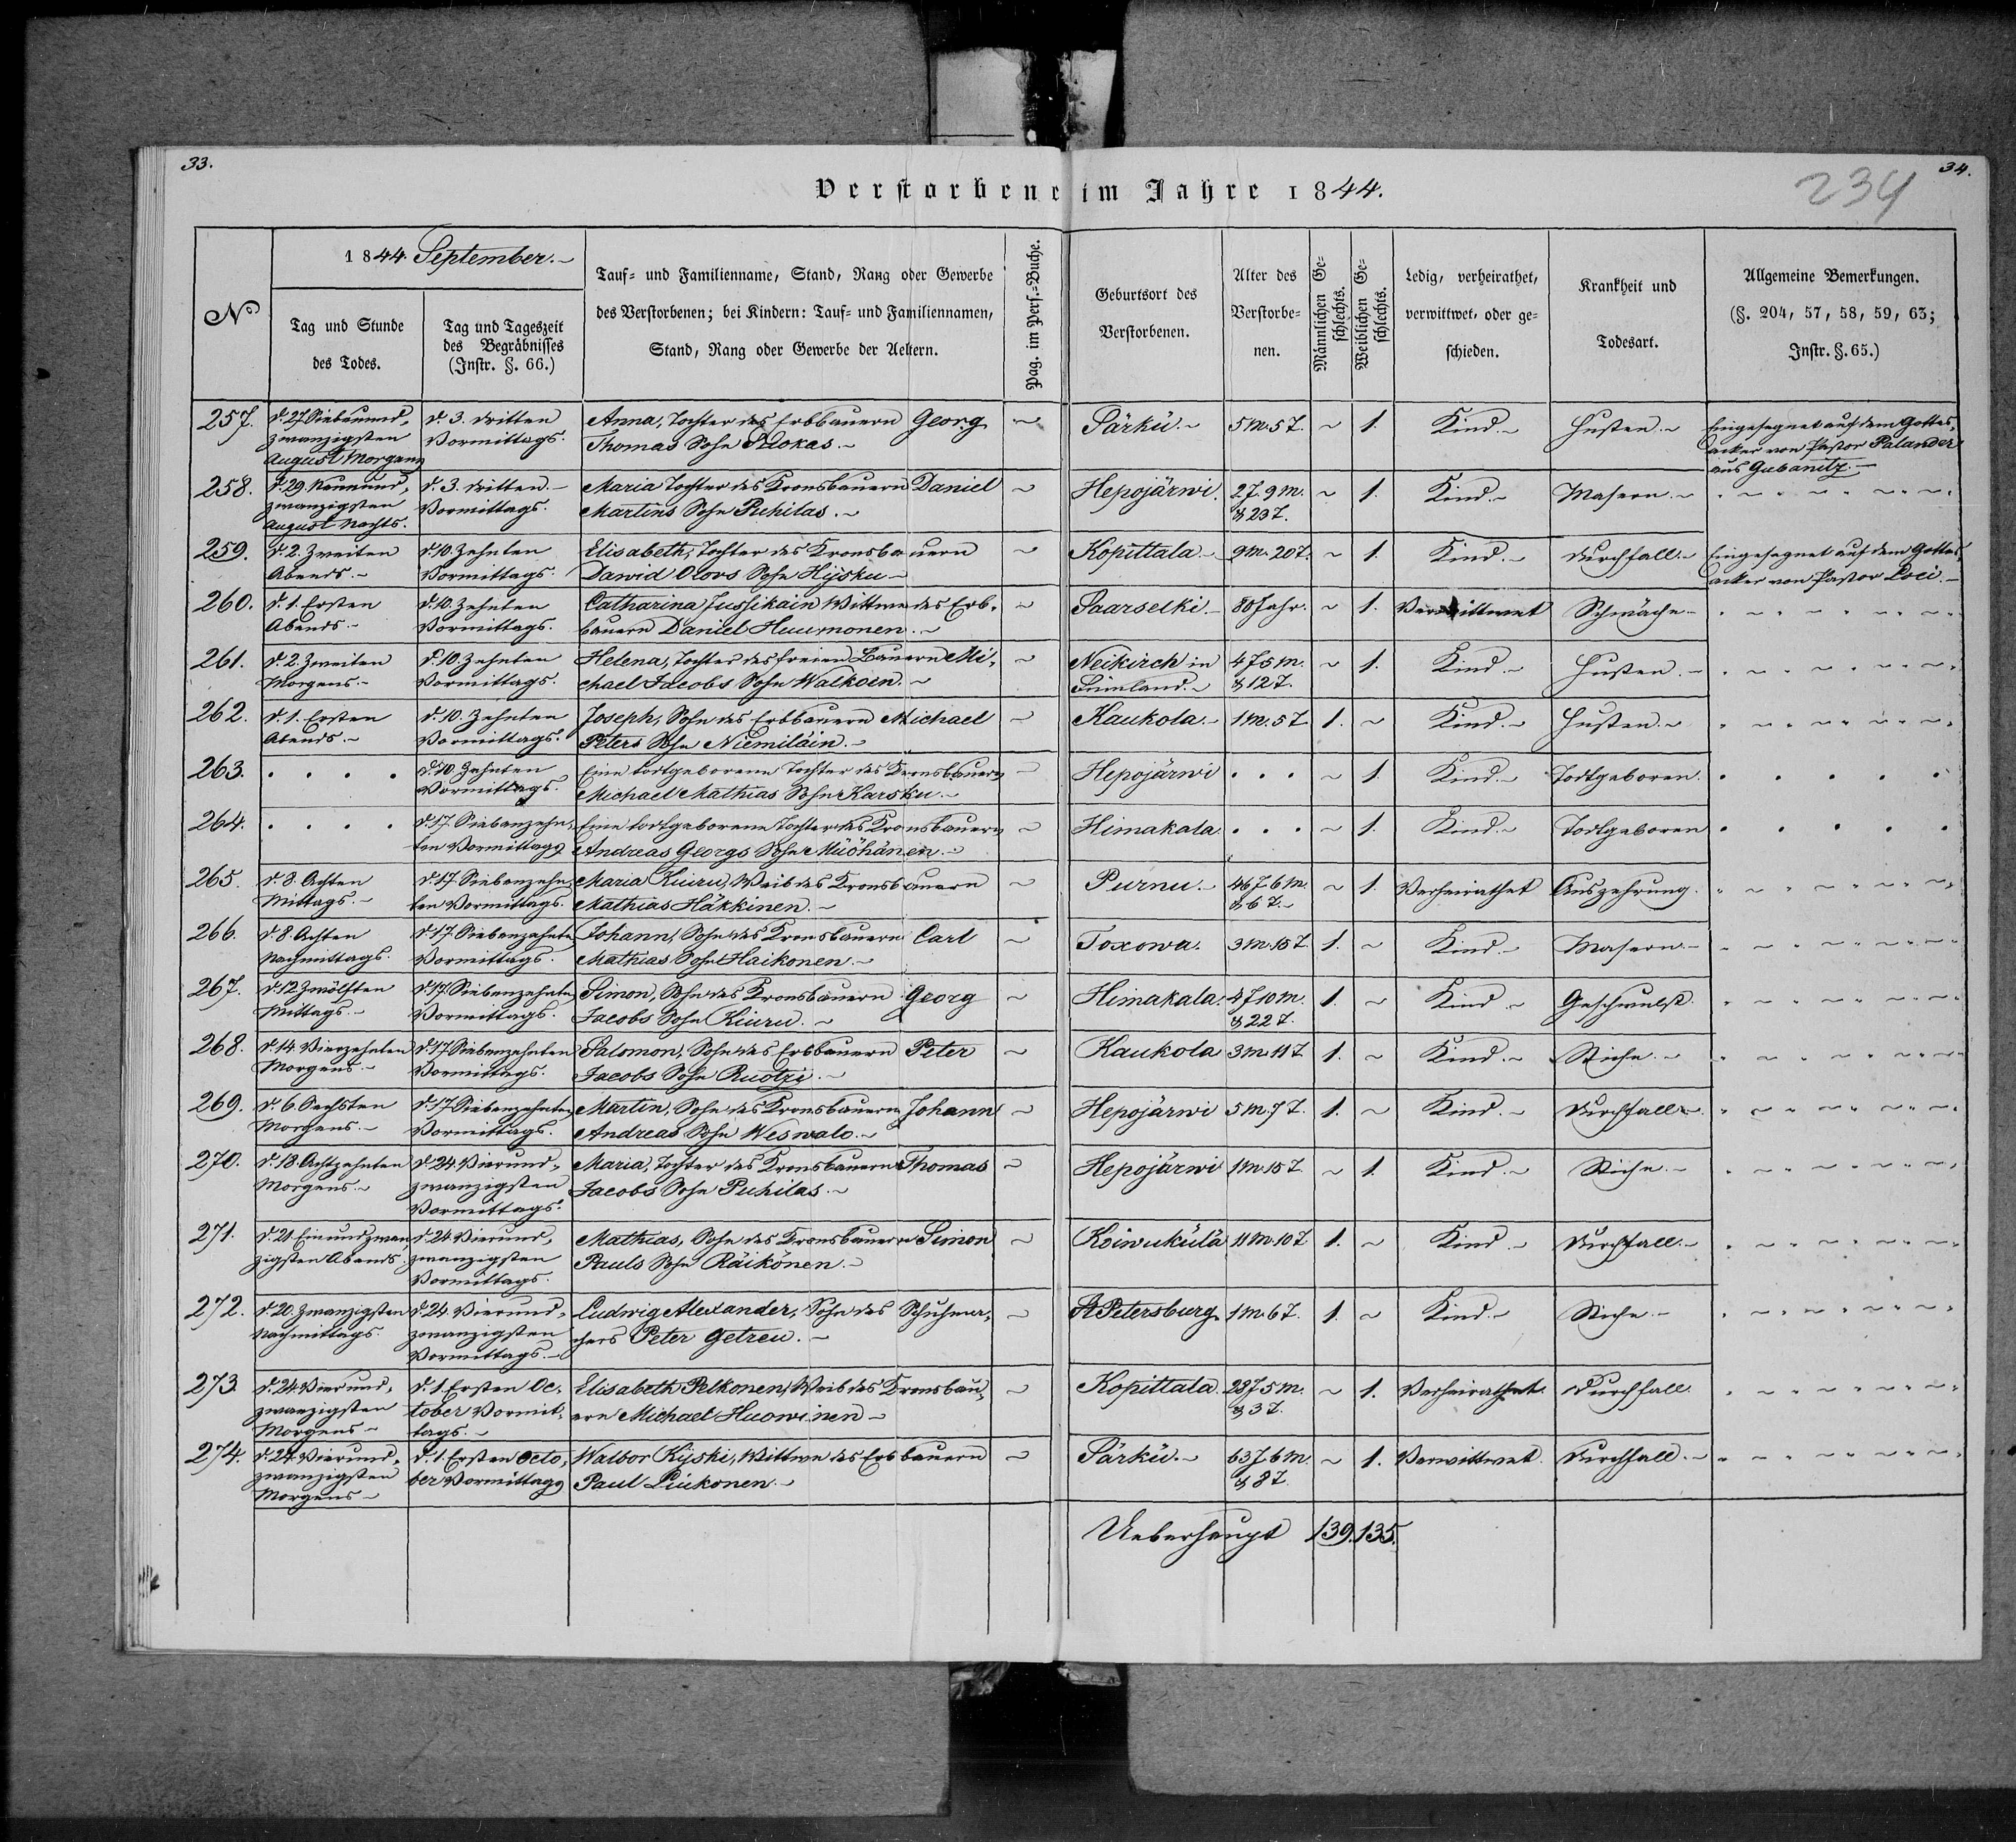 33.
34.
234
Verstorbene im Jahre 1844.
No
1844 September.
Tag und Stunde des Todes.
Tag und Tageszeit des Begräbnisses (Instr. §. 66.)
Tauf- und Familienname, Stand, Rang oder Gewerbe
des Verstorbenen; bei Kindern: Tauf- und Familiennamen,
Stand, Rang oder Gewerbe der Aeltern.
Pag. im Pers.-Buche.
Geburtsort des Verstorbenen.
Alter des Verstorbe-nen.
Männlichen Ge-schlechts.
Weiblichen Ge-schlechts.
Ledig, verheirathet, verwittwet, oder ge-schieden.
Krankheit und Todesart.
Allgemeine Bemerkungen.
(§. 204, 57, 58, 59, 63; Instr. §. 65.)
257. d. 27 Siebenund- d. 3. dritten Anna, Tochter des Erbbauern Georg ~ Särkü. 5 M. 5 T. ~ 1. Kind. Husten. Eingesegnet auf dem Gottes-
zwanzigsten Vormittags. Thomas Sohn acker von Pastor Palander
August Morgens aus Gubanitz.
258. d. 29. Neunund- d. 3. dritten Maria Tochter des Kronsbauern Daniel ~ Hepojärwi. 2 J. 9 M. ~ 1. Kind. Masern.
zwanzigsten Vormittags. Martins Sohn Puhilas. & 23 T.
August Nachts.
259. d. 2. Zweiten d. 10. Zehnten Elisabeth, Tochter des Kronsbauern ~ Kopittala 9 M. 20 T. ~ 1. Kind. Durchfall. Eingesegnet auf dem Gottes-
Abends. Vormittags. Dawid Olovs Sohn Hijsku acker von Pastor
260. d. 1. Ersten d. 10. Zehnten Catharina Jussikain Wittwe des Erb- ~ Saarselki 80 Jahr. ~ 1. Verwittwet Schwäche
Abends. Vormittags. bauern Daniel Huumonen.
261. d. 2. Zweiten d. 10. Zehnten Helena, Tochter des freien Bauern Mi- ~ Neikirch in 4 J. 5 M. ~ 1. Kind. Husten.
Morgens. Vormittags. chael Jacobs Sohn Walkoin. Finnland. & 12 T.
262. d. 1. Ersten d. 10. Zehnten Joseph, Sohn des Erbbauern Michael ~ Kaukola. 1 M. 5 T. 1. ~ Kind. Husten.
Abends. Vormittags. Peters Sohn Niemiläin.
263. . . . . d. 10 Zehnten Eine todtgeborene Tochter des Kronsbauern ~ Hepojärwi . . . ~ 1. Kind. Todtgeboren. . . . . .
Vormittags. Michael Mathias Sohn Karsku.
264. . . . . d. 17. Siebenzehn- Eine todtgeborene Tochter des Kronsbauern ~ Himakala . . . ~ 1. Kind. Todtgeboren . . . . .
ten Vormittags Andreas Georgs Sohn Müöhänen.
265. d. 8. Achten d. 17 Siebenzehn- Maria Kiuru, Weib des Kronsbauern ~ Purnu. 46 J. 6 M. ~ 1. Verheirathet Auszehrung.
Mittags. ten Vormittags. Mathias Häkkinen. & 6 T.
266. d. 8. Achten d. 17. Siebenzehnten Johann, Sohn des Kronsbauern Carl ~ Toxowa. 3 M. 15 T. 1. ~ Kind. Masern.
Nachmittags. Vormittags. Mathias Sohn Haikonen.
267. d. 12 Zwölften d. 17. Siebenzehnten Simon, Sohn des Kronsbauern Georg ~ Himakala. 4 J. 10 M. 1. ~ Kind Geschwulst.
Mittags. Vormittags. Jacobs Sohn Kiuru. & 22 T.
268. d. 14. Vierzehnten d. 17 Siebenzehnten Salomon, Sohn des Erbbauern Peter ~ Kaukola 3 M. 11 T. 1. ~ Kind. Stiche.
Morgens. Vormittags. Jacobs Sohn Ruotzi.
269. d. 6. Sechsten d. 17 Siebenzehnten Martin, Sohn des Kronsbauern Johann ~ Hepojärwi 5 M. 7 T. 1. ~ Kind. Durchfall.
Morgens. Vormittags. Andreas Sohn Weswalo.
270. d. 18. Achtzehnten d. 24. Vierund- Maria, Tochter des Kronsbauern Thomas ~ Hepojärwi 1 M. 15 T. ~ 1 Kind. Stiche.
Morgens. zwanzigsten Jacobs Sohn Puhilas.
Vormittags.
271. d. 21. Einundzwan- d. 24. Vierund- Mathias, Sohn des Kronsbauern Simon ~ Koiwukülä 11 M. 10 T. 1. ~ Kind. Durchfall.
zigsten Abends. zwanzigsten Pauls Sohn Räikönen.
Vormittags.
272. d. 20. Zwanzigsten d. 24. Vierund- Ludwig Alexander, Sohn des Schuhma- ~ St Petersburg 1 M. 6 T. 1. ~ Kind. Stiche.
Nachmittags. zwanzigsten chers Peter Getreu.
Vormittags.
273. d. 24. Vierund- d. 1. Ersten Oc- Elisabeth Pelkonen, Weib des Kronsbau- ~ Kopittala 28 J. 5 M. ~ 1. Verheirathet. Durchfall.
zwanzigsten tober Vormit- ern Michael Huowinen & 3 T.
Morgens tags.
274. d. 24. Vierund- d. 1. Ersten Octo- Walbor Kijski, Wittwe des Erbbauern ~ Särkü. 63 J. 6 M. ~ 1. Verwittwet. Durchfall.
zwanzigsten ber Vormittags Paul Liukonen. & 8 T.
Morgens
Ueberhaupt 139. 135.